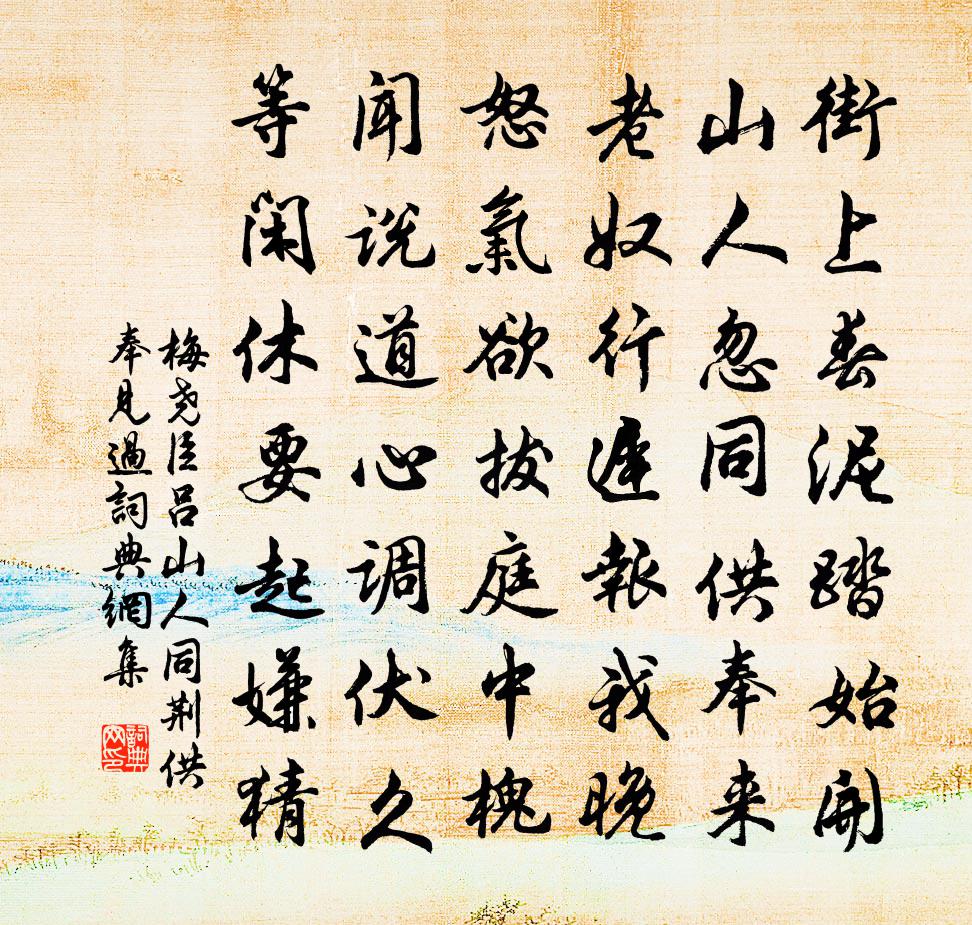 街上春泥踏始開
山人忽同供奉来
老奴行遲報我晚
怒氣欲拔庭中槐
聞说道心调伏久
等闲休要起嫌猜
梅尧臣吕山人同荆供
奉見過詞典網集
詞典網印